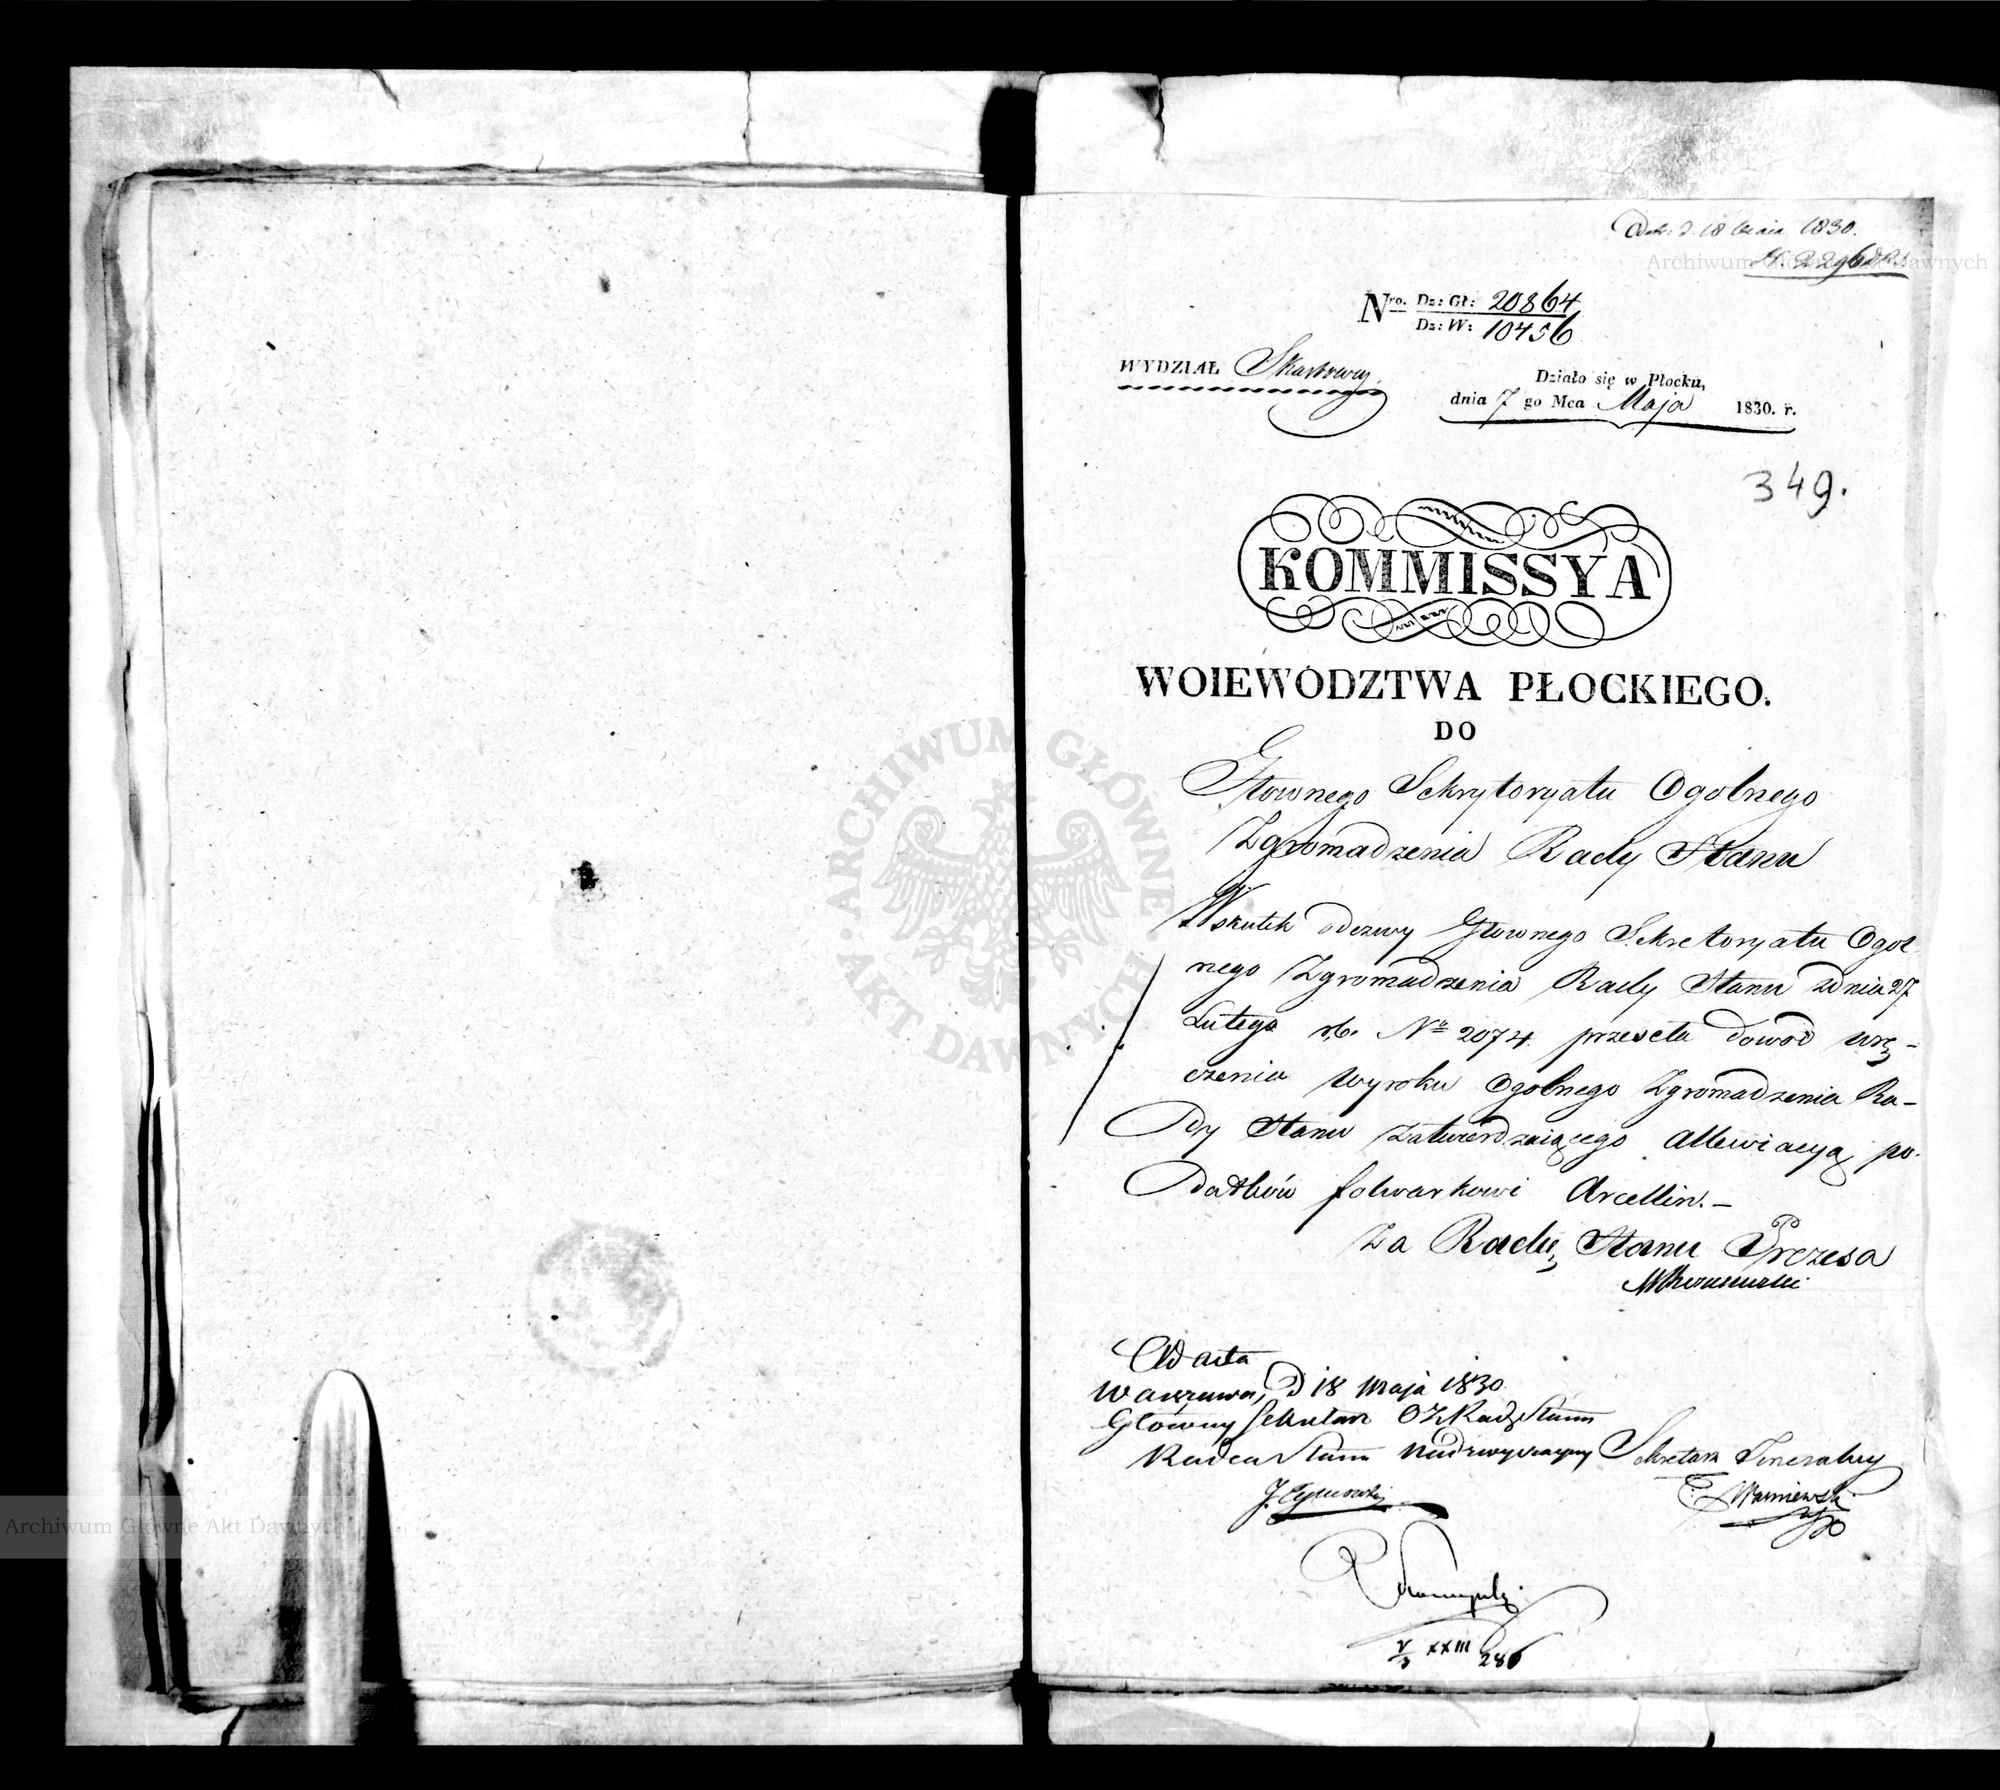 Odeb: d. 18 Maia 1830.
Nro. Dz: Gł: 20864
Dz: W: 10456
WYDZIAŁ Skarbowy
Działo się w Płocku,
dnia 7 go Mca Maja 1830. r.
349.
KOMMISSYA
WOIEWODZTWA PŁOCKIEGO.
DO
Głownego Sekrytoryatu Ogolnego
Zgromadzenia Rady Stanu
Wskutek odezwy Głownego Sekretoryatu Ogol
nego Zgromadzenia Rady Stanu zdnia 27
Lutego rb. No 2074 przeseła dowod wrę-
czenia wyroku Ogolnego Zgromadzenia Ra-
dy Stanu zatwierdzaiącego allewiacyą po-
datków folwarkowi Arcellin.-
Za Radcę Stanu Prezesa
Ad acta
Warszawa, d 18 Maja 1830
Główny Sekretarz OZ Rady Stanu
Radca Stanu Nadzwyczayny
Sekretarz Jeneralny
XXIII
286
ARCHIWUM GŁÓWNE
AKT DAWNYCH
Archiwum Główne Akt Dawnych
Archiwum Główne Akt Dawnych